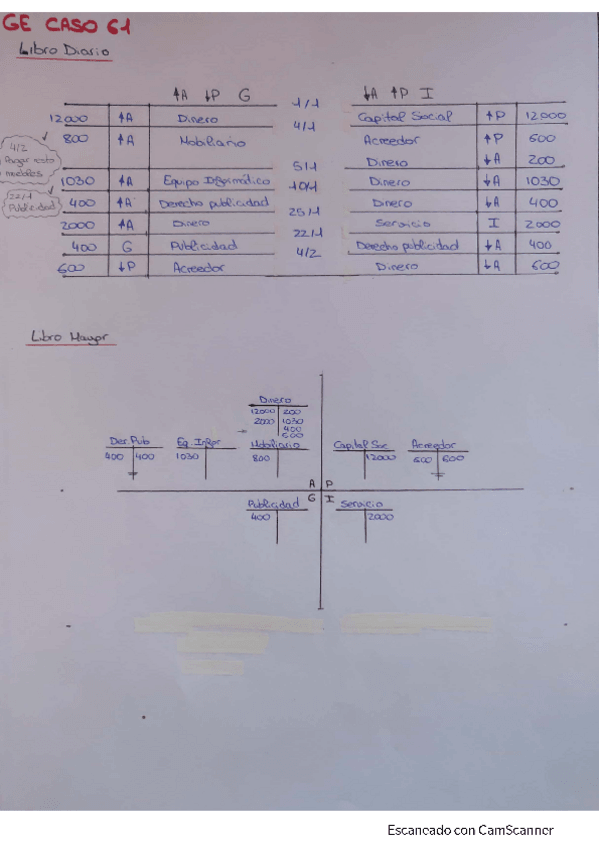 GE CASO 61
Libro Diario
↑A ↓P G ↓A ↑P I
1/1
12000 ↑A Dinero Capital Social ↑P 12000
4/1
800 ↑A Mobiliario Acreedor ↑P 600
Dinero ↓A 200
4/2
Pagar resto
muebles
5/1
1030 ↑A Equipo Informático Dinero ↓A 1030
10/1
22/1
Publicidad
400 ↑A Derecho publicidad Dinero ↓A 400
25/1
2000 ↑A Dinero Servicio I 2000
22/1
400 G Publicidad Derecho publicidad ↓A 400
4/2
600 ↓P Acreedor Dinero ↓A 600
Libro Mayor
Dinero
12000 200
2000 1030
400
600
Der. Pub Eq. Infor Mobiliario Capital Soc Acreedor
400 400 1030 800 12000 600 600
A P
G I
Publicidad Servicio
400 2000
Escaneado con CamScanner